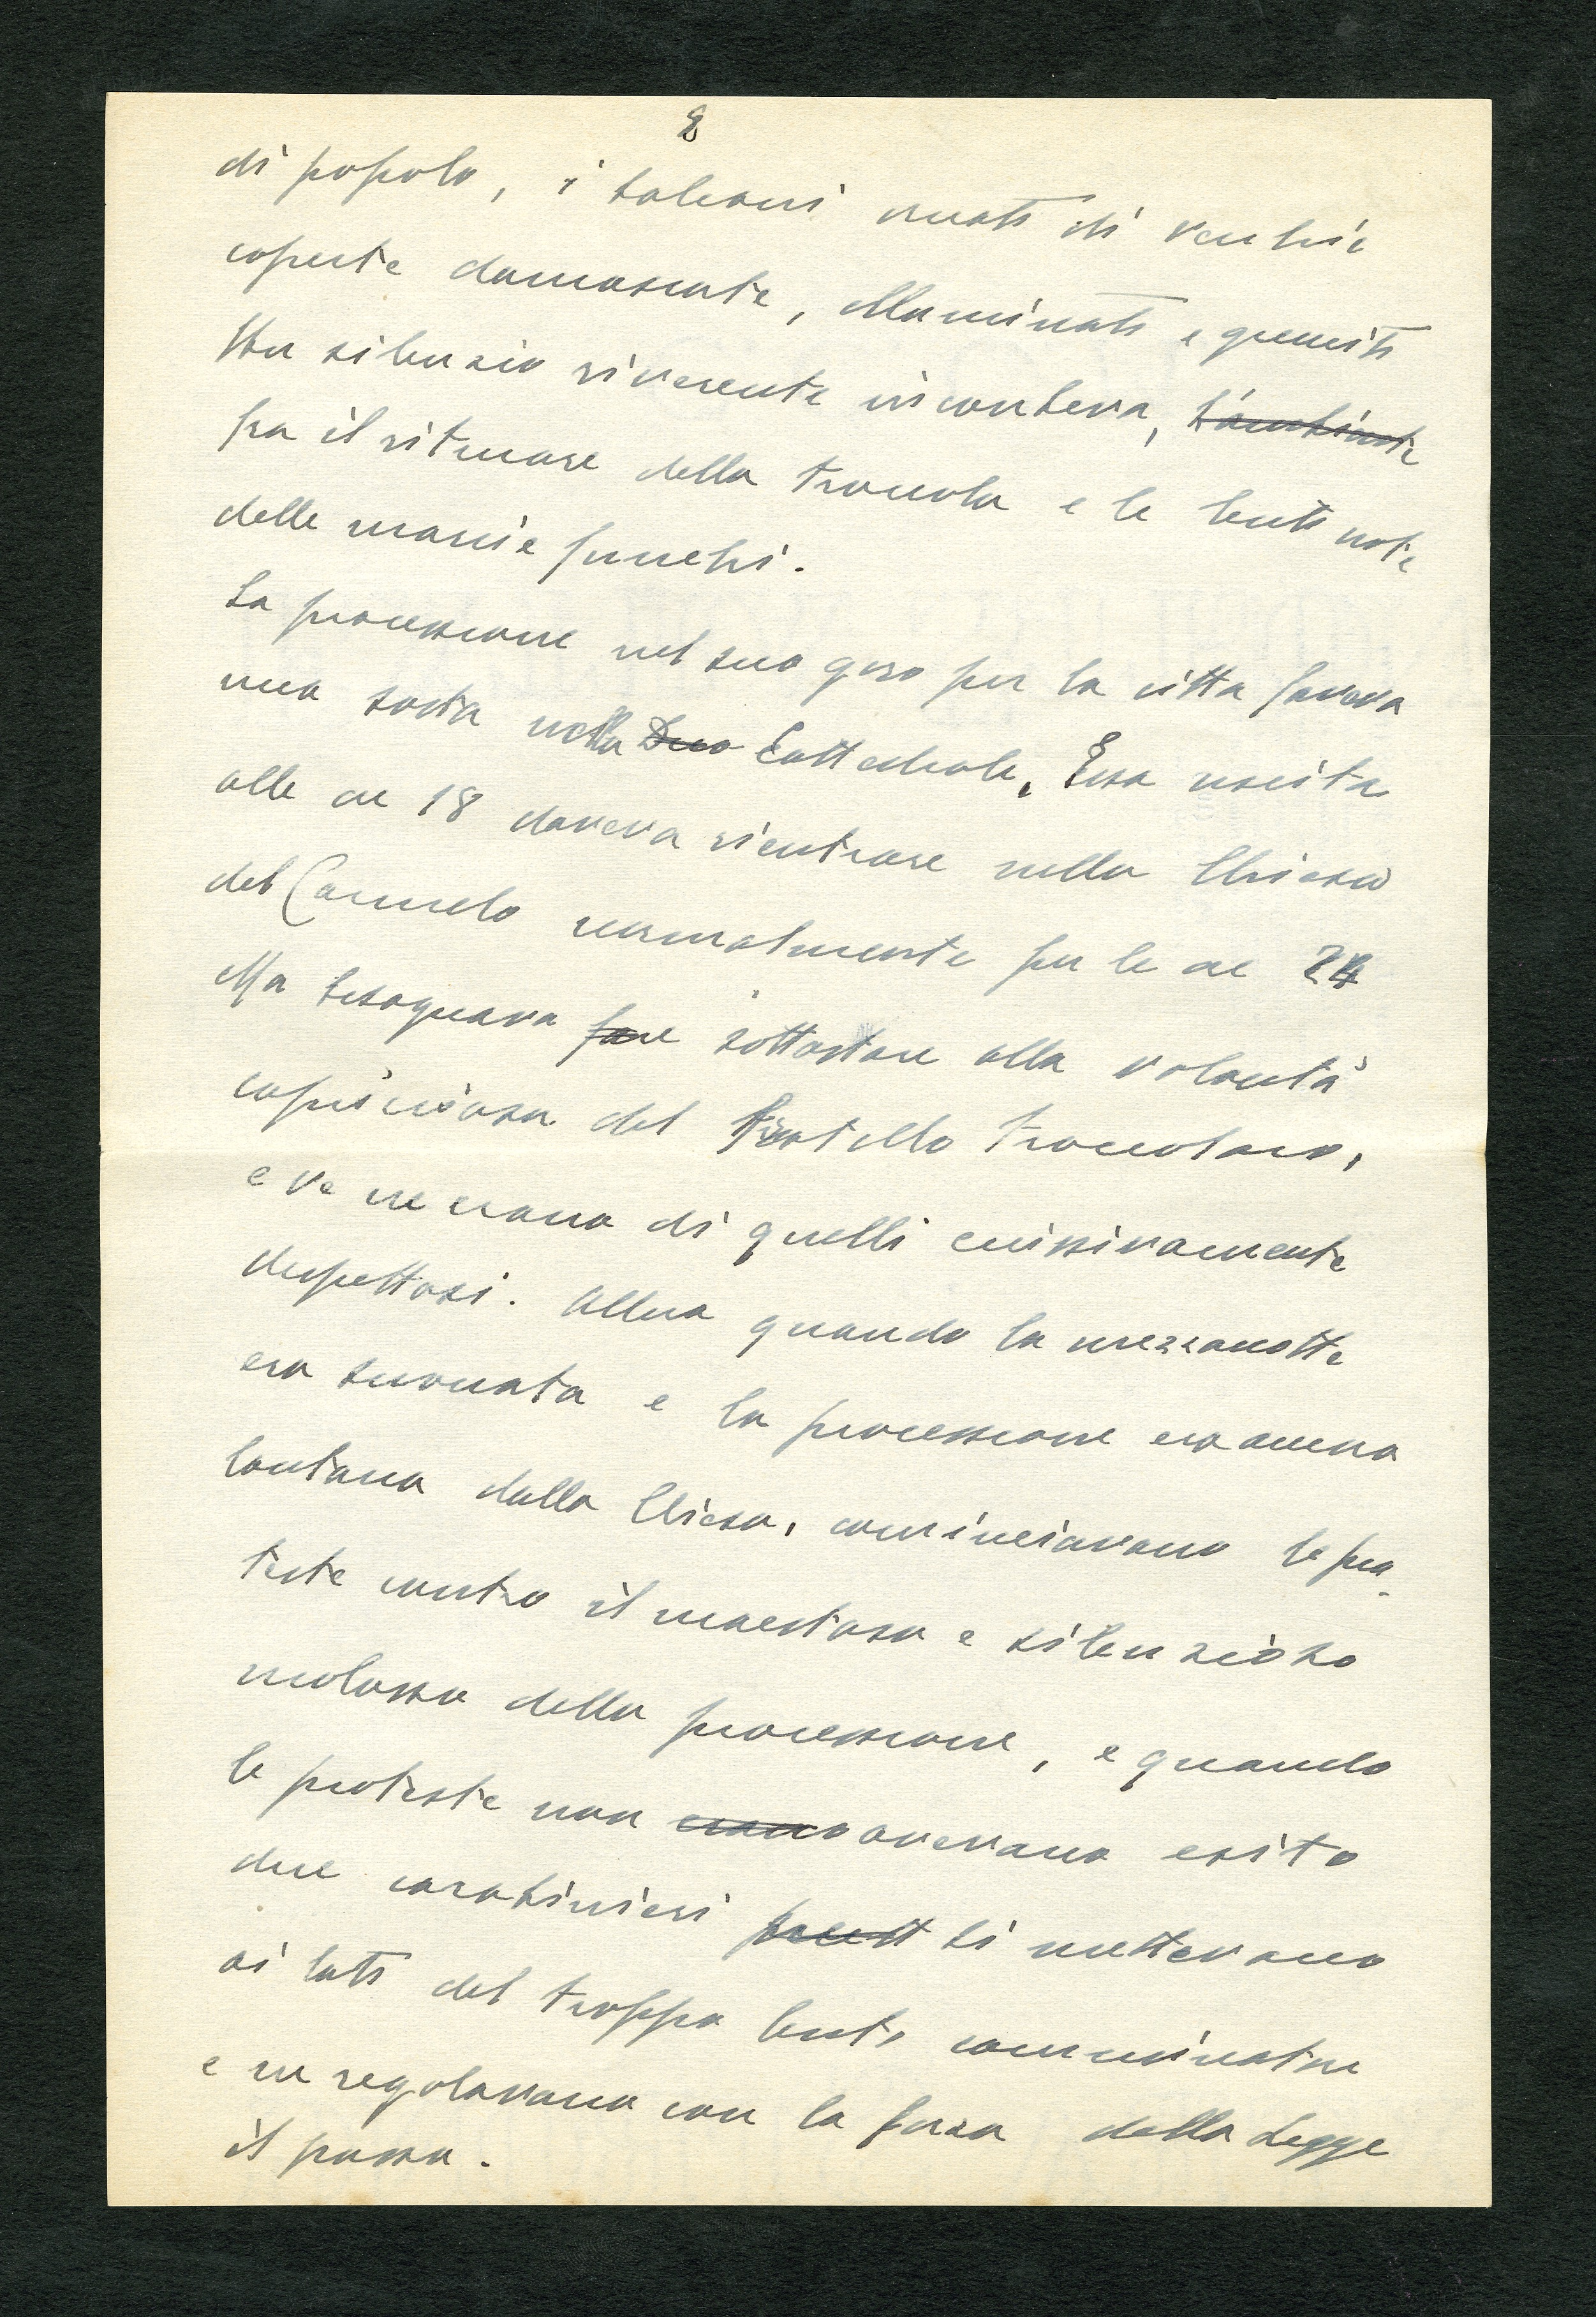 8
di popolo, i balconi ornati di vecchie
coperte damascate, illuminati e gremiti
Un silenzio riverente incombeva, l'ambiente
fra il ritmare della troccola e le lenti note
delle marcie funebri.
La processione nel suo giro per la città faceva
una sosta nella Duo Cattedrale. Essa uscita
alle ore 18 doveva rientrare nella Chiesa
del Carmelo normalmente per le ore 24
Ma bisognava fare sottostare alla volontà
capricciosa del fratello troccolaro,
e ve ne erano di quelli eccessivamente
dispettosi. Allora quando la mezzanotte
era suonata e la processione era ancora
lontana dalla Chiesa, cominciavano le pro-
teste contro il maestoso e silenzioso
molosso della processione, e quando
le proteste non erano avevano esito
due carabinieri si mettevano
ai lati del troppo lento camminatore
e ne regolavano con la forza della Legge
il passo.